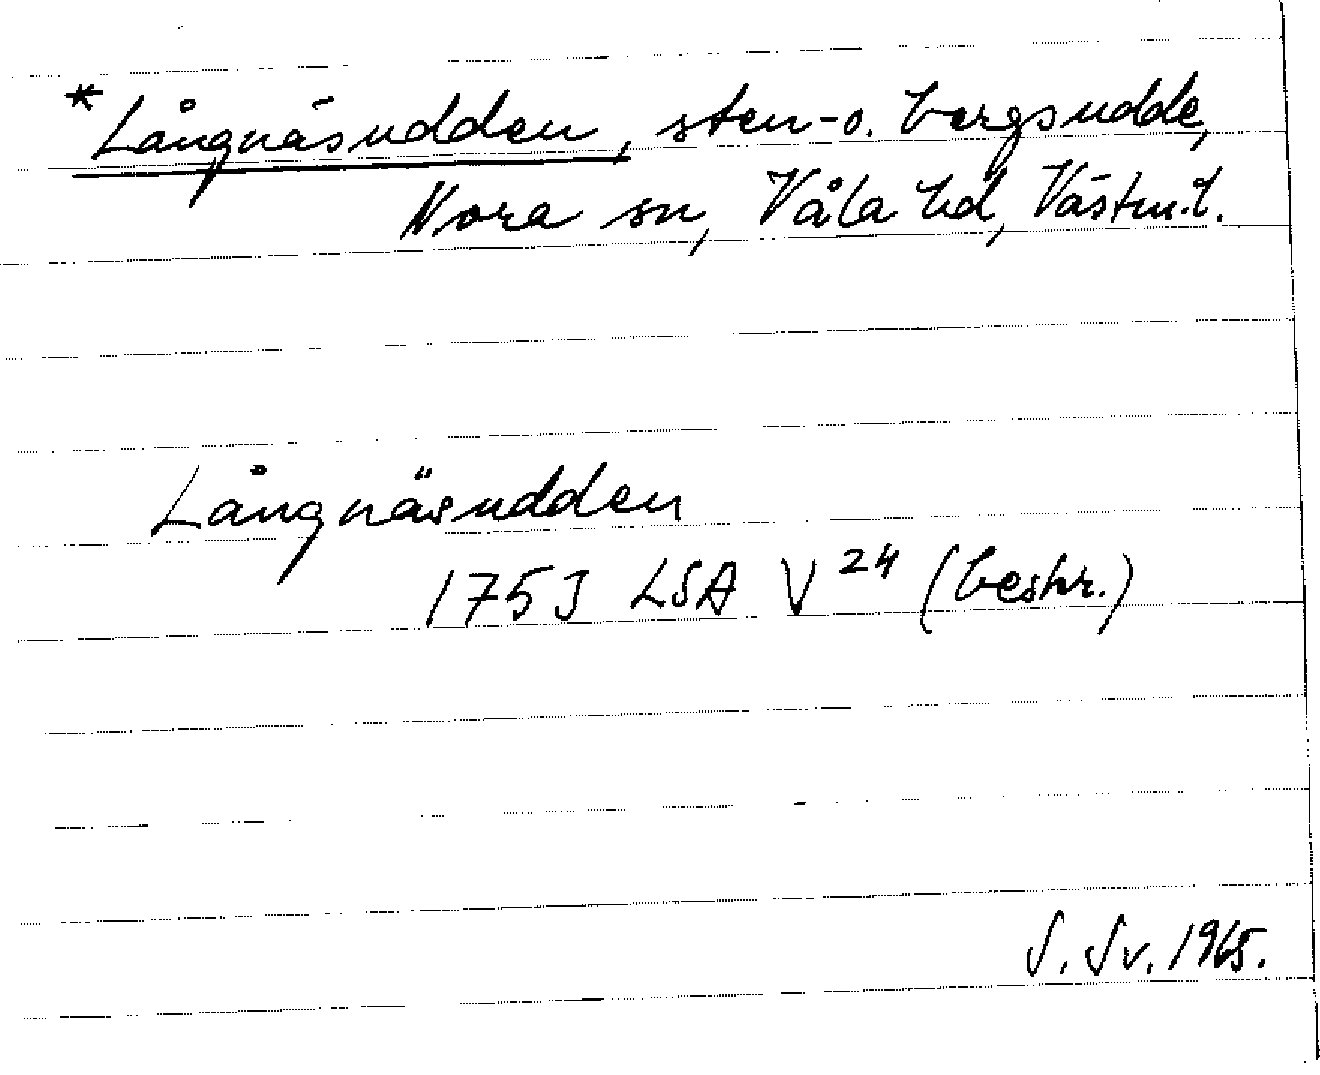 *Långnäsudden, sten- o. bergsudde,
Nora sn, Våla hd, Västm.l.
Långnäsudden
1753 LSA V 24 (beskr.)
S. Sv. 1965.